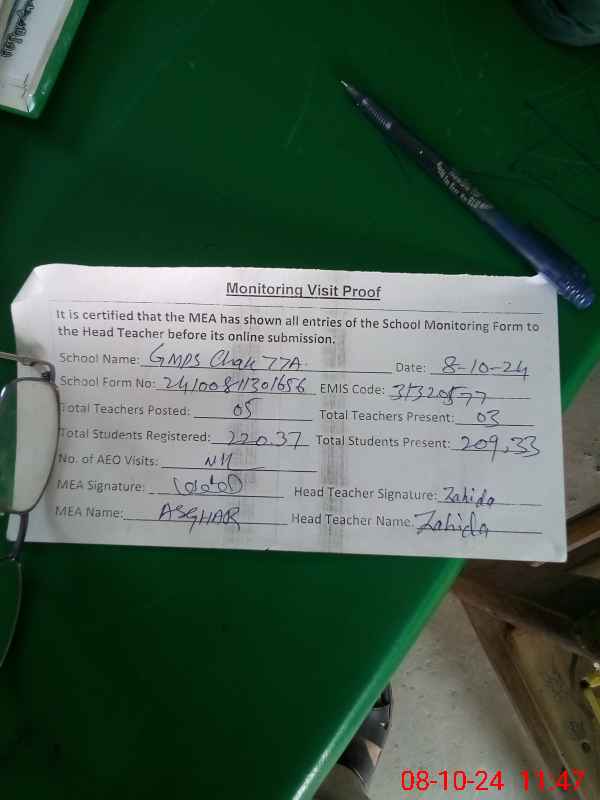 Monitoring Visit Proof
It is certified that the MEA has shown all entries of the School Monitoring Form to
the Head Teacher before its online submission.
School Name: GMPS Chak 77A. Date: 8-10-24
School Form No: 24100811301656 EMIS Code: 31320577
Total Teachers Posted: 05 Total Teachers Present: 03
Total Students Registered: 220.37 Total Students Present: 209,33
No. of AEO Visits: Nil
MEA Signature: Head Teacher Signature: Zahida
MEA Name: ASGHAR Head Teacher Name. Zahida
08-10-24 11:47